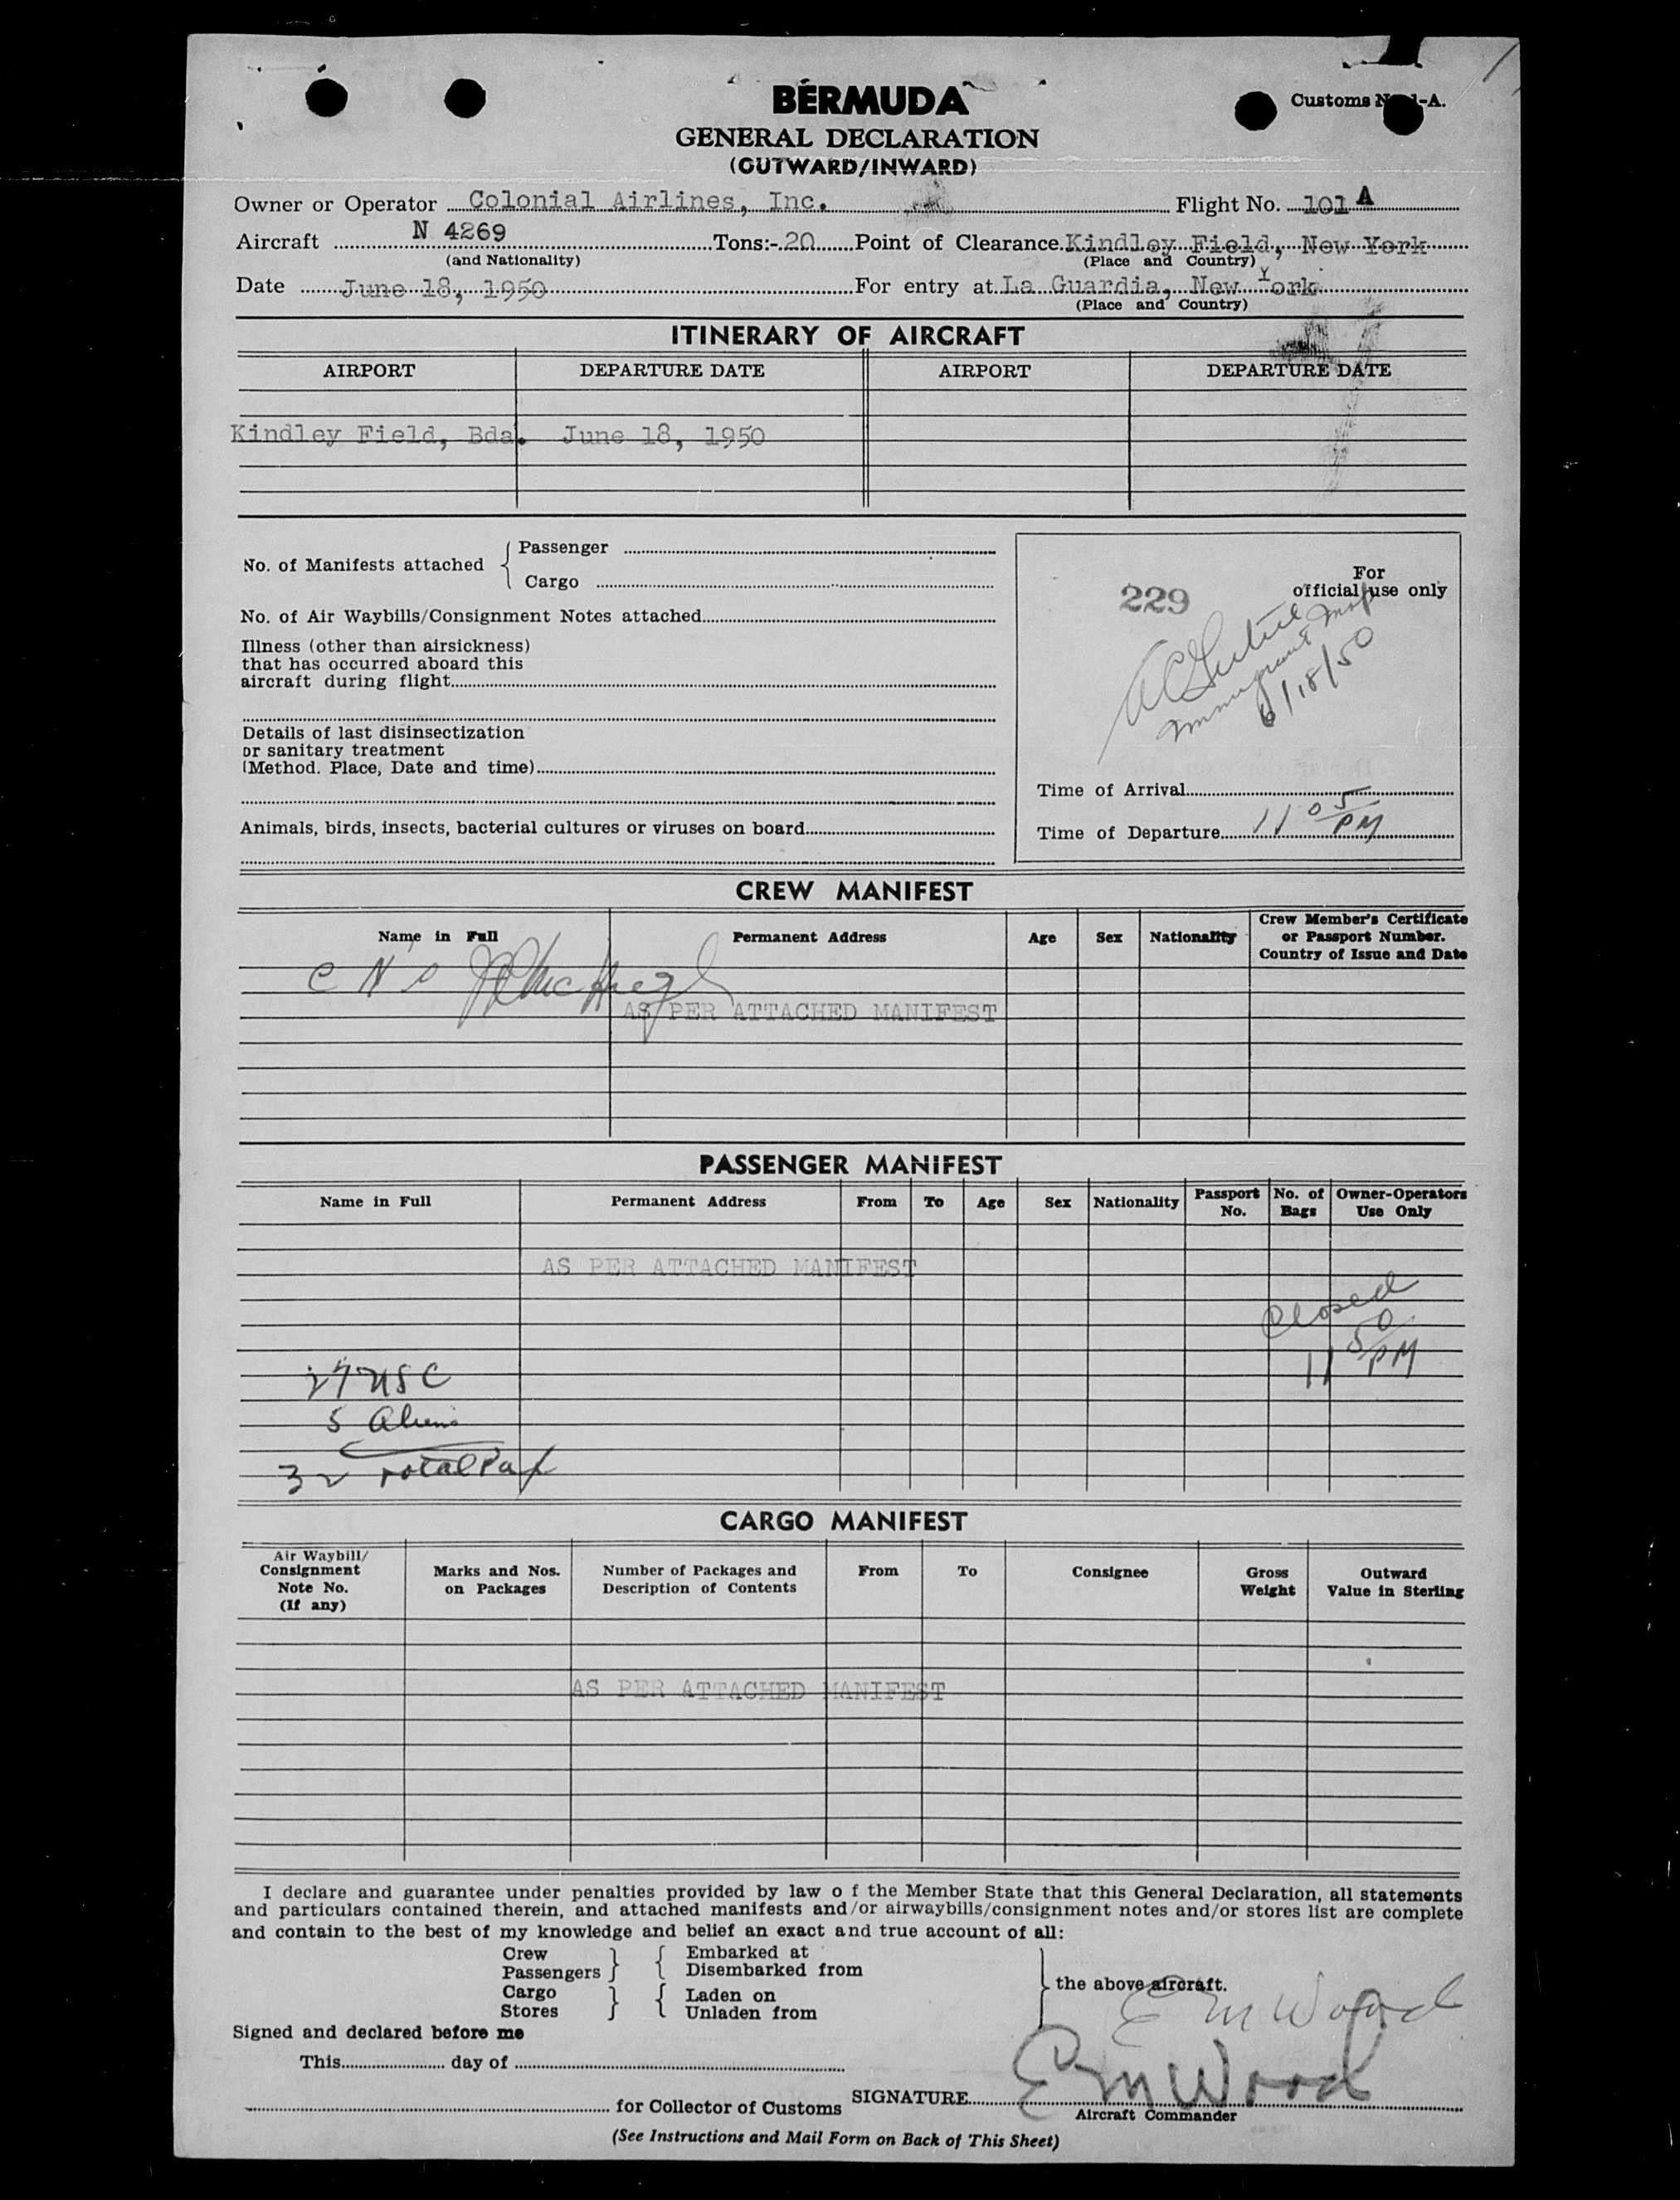 BERMUDA
Customs -A.
GENERAL DECLARATION
(OUTWARD/INWARD)
Owner or Operator Colonial Airlines, Inc. Flight No. 101 A
Aircraft N 4269 Tons:- 20 Point of Clearance Kindley Field, New York
(and Nationality) (Place and Country)
Date June 18, 1950 For entry at La Guardia, New York
(Place and Country)
ITINERARY OF AIRCRAFT
AIRPORT DEPARTURE DATE AIRPORT DEPARTURE DATE
Kindley Field, Bda. June 18, 1950
No. of Manifests attached { Passenger
Cargo
No. of Air Waybills/Consignment Notes attached
Illness (other than airsickness)
that has occurred aboard this
aircraft during flight
Details of last disinsectization
or sanitary treatment
(Method. Place, Date and time)
Animals, birds, insects, bacterial cultures or viruses on board
For
official use only
229
6/18/50
Time of Arrival
Time of Departure 11 05 PM
CREW MANIFEST
Name in Full Permanent Address Age Sex Nationality Crew Member's Certificate
or Passport Number.
Country of Issue and Date
AS PER ATTACHED MANIFEST
PASSENGER MANIFEST
Name in Full Permanent Address From To Age Sex Nationality Passport No. No. of Bags Owner-Operators Use Only
AS PER ATTACHED MANIFEST
Closed
11 50 PM
27 USC
5 Aliens
32 Total Pax
CARGO MANIFEST
Air Waybill/
Consignment
Note No.
(If any)
Marks and Nos.
on Packages
Number of Packages and
Description of Contents
From To Consignee
Gross
Weight
Outward
Value in Sterling
AS PER ATTACHED MANIFEST
I declare and guarantee under penalties provided by law o f the Member State that this General Declaration, all statements
and particulars contained therein, and attached manifests and/or airwaybills/consignment notes and/or stores list are complete
and contain to the best of my knowledge and belief an exact and true account of all:
Crew } { Embarked at
Passengers Disembarked from
Cargo } { Laden on
Stores Unladen from
} the above aircraft.
E M Wood
Signed and declared before me
This day of
E M Wood
for Collector of Customs SIGNATURE
Aircraft Commander
(See Instructions and Mail Form on Back of This Sheet)